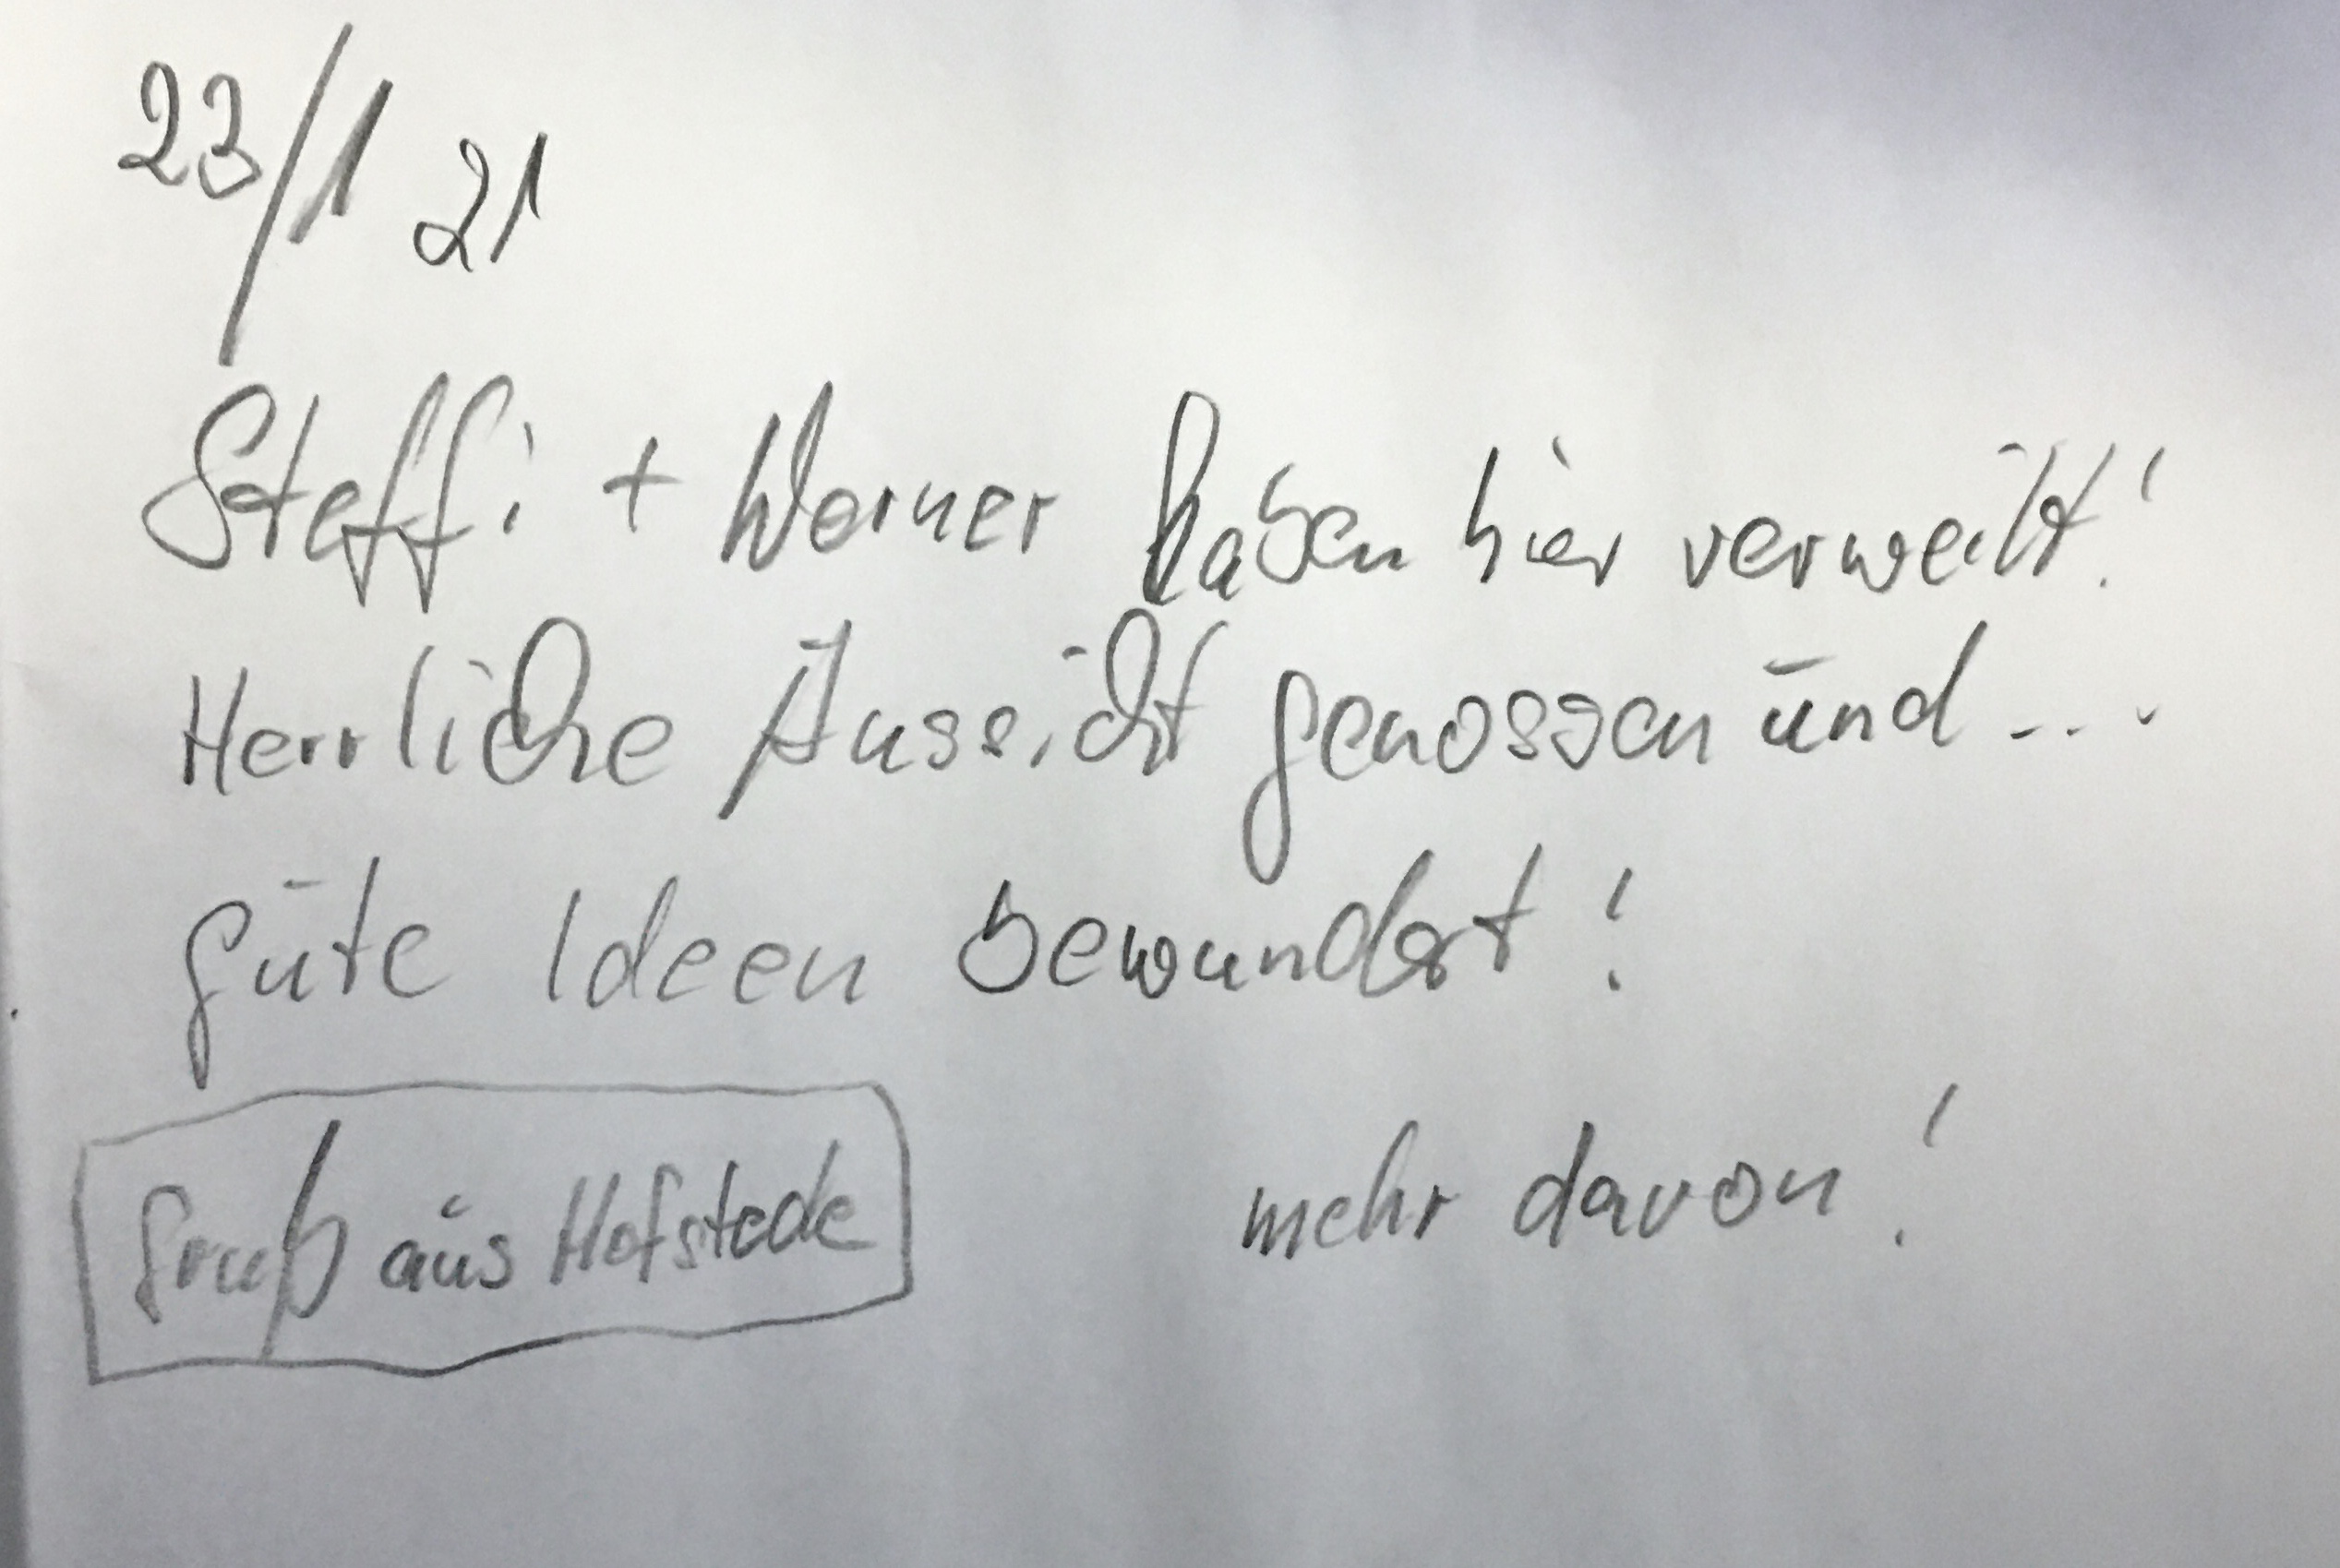 23/1 21
Steffi + Werner haben hier verweilt!
Herrliche Aussicht genossen und ...
gute Ideen bewundert!
Gruß aus Hofstede
mehr davon!